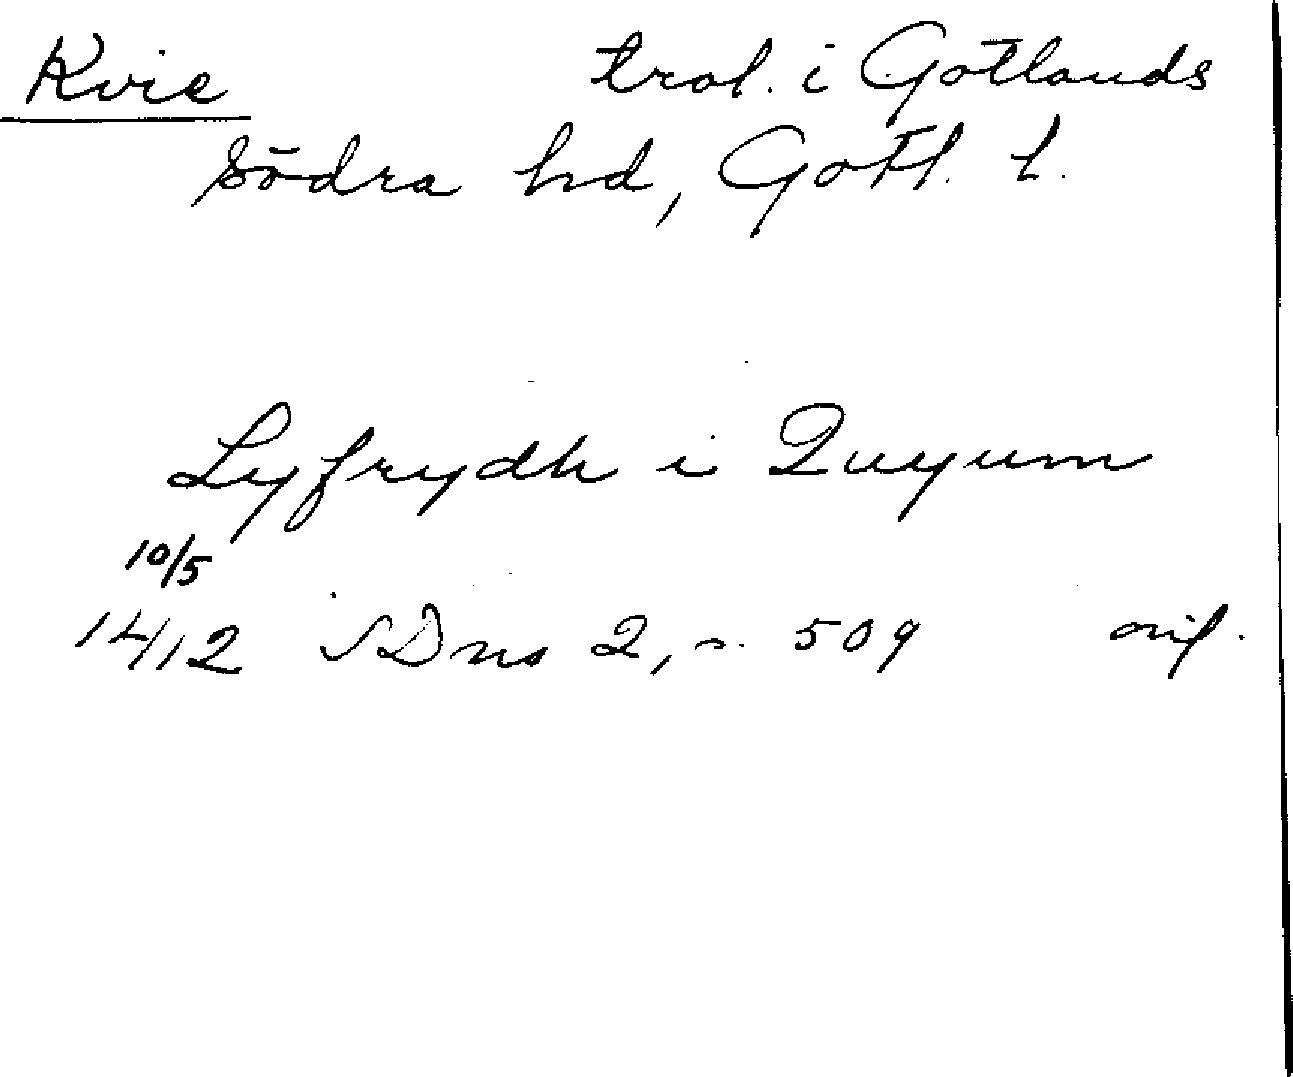 Kvie trol. i Gotlands
södra hd, Gotl. l.
Lyfrydh i Quyum
10/5
1412 SDns 2, s. 509 orig.